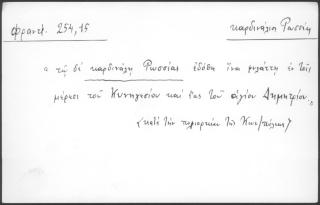 φραντ. 254, 15 καρδινάλιοι Ρωσσίας
α τῷ δὲ καρδινάλῃ Ρωσσίας ἐδόθη ἵνα φυλάττῃ ἐν τοῖς
μέρεσι τοῦ Κυνηγεσίου καὶ ἕως τοῦ ἁγίου Δημητρίου.
(κατὰ τὴν πολιορκίαν τῆς Κων/πόλεως)